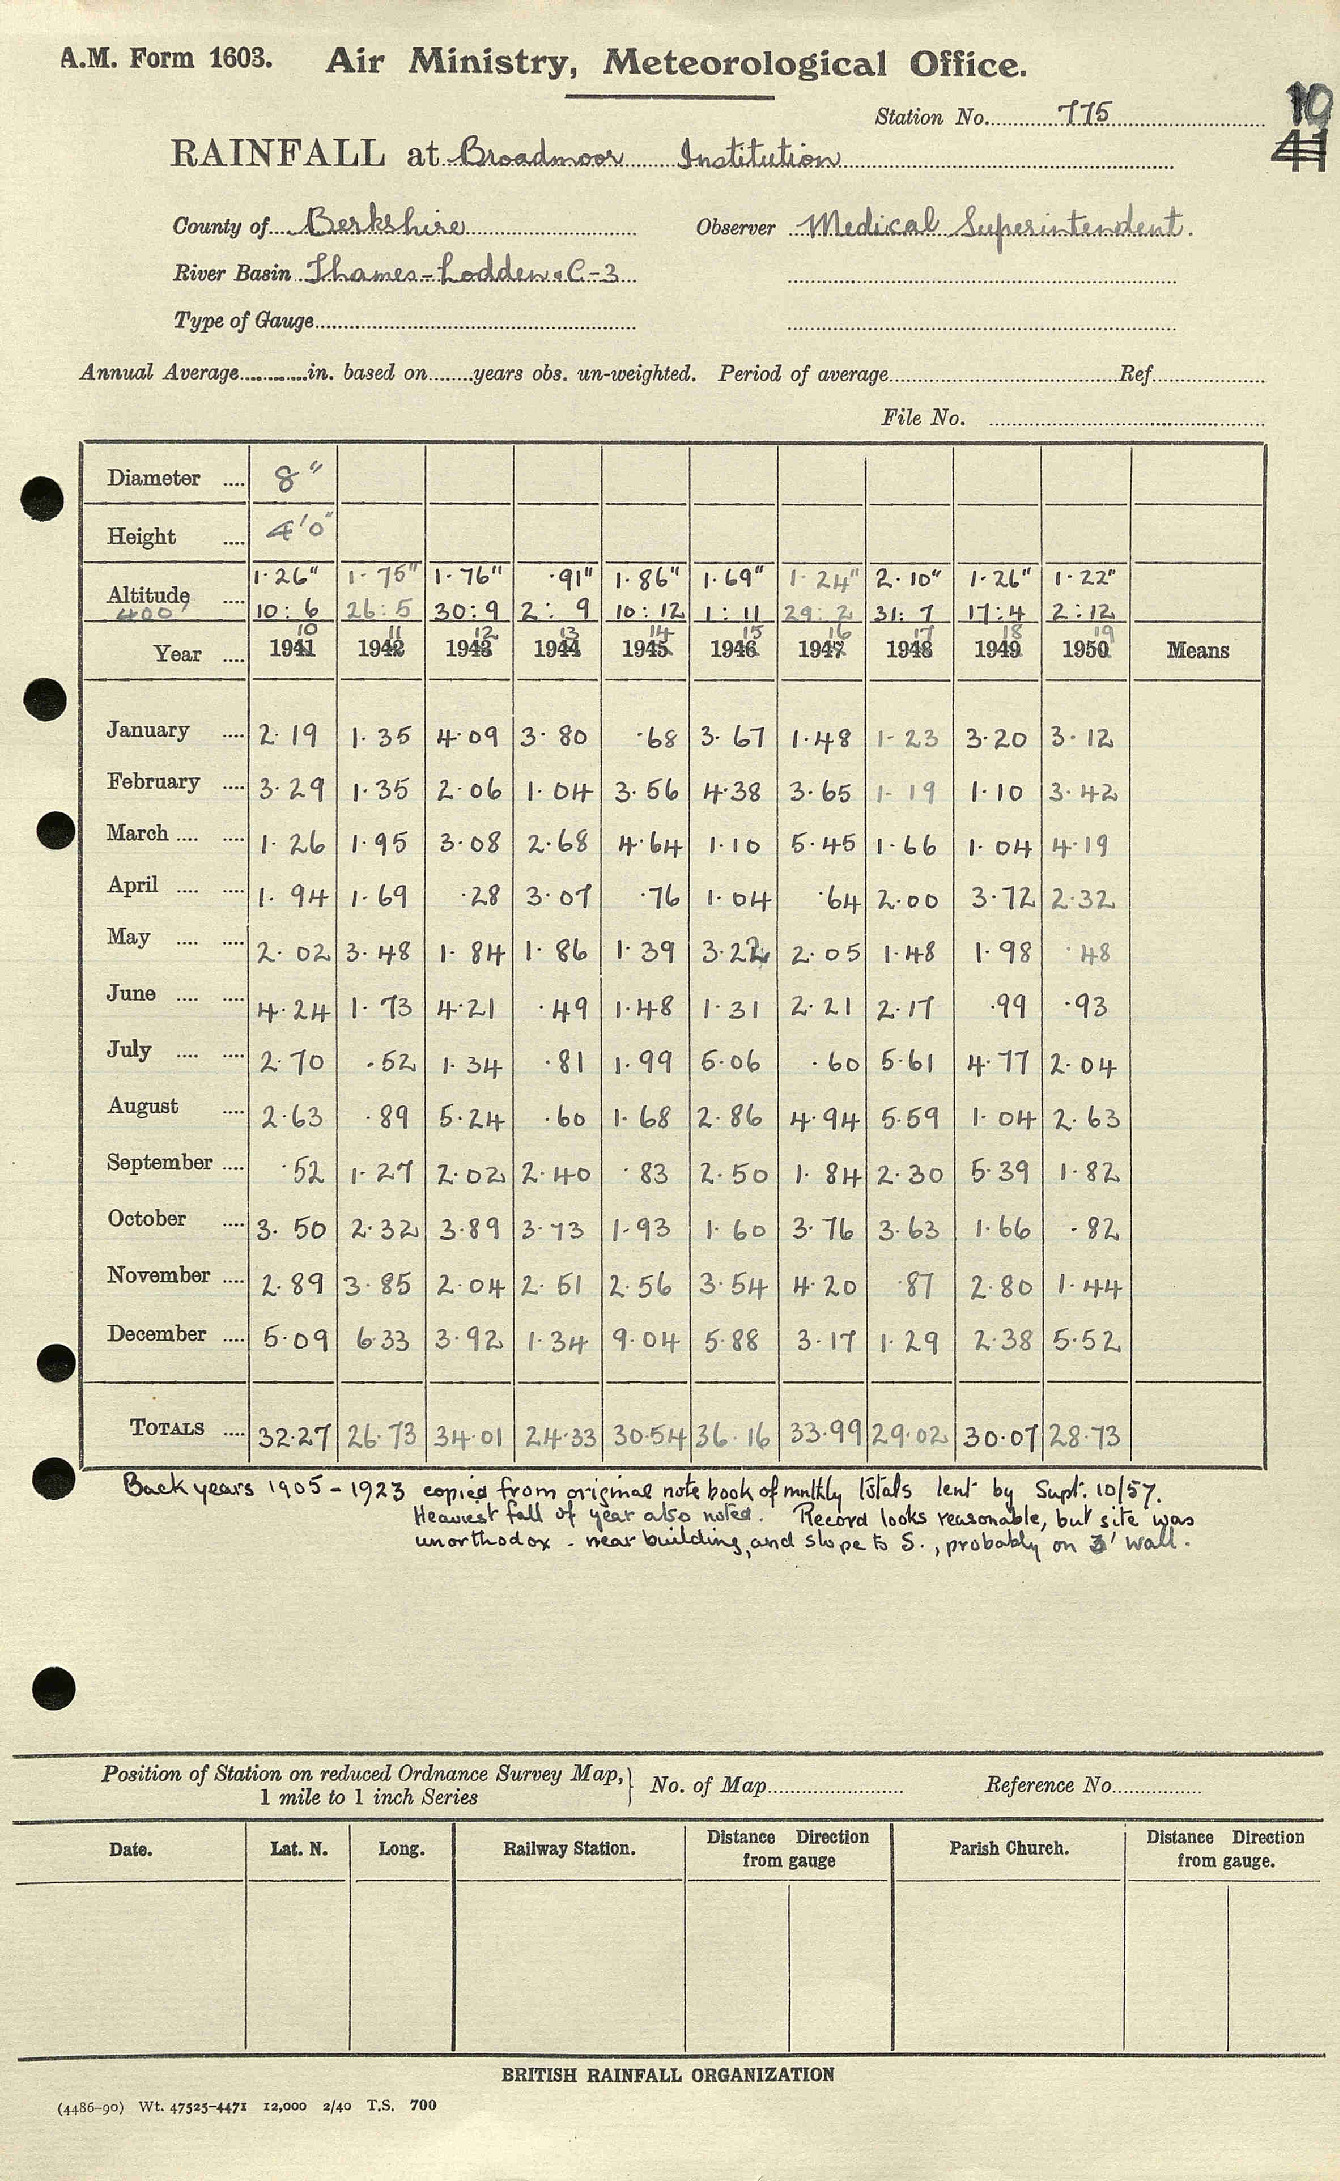 A.M. Form 1603. Air Ministry, Meteorological Office.
10
41
Station No. 775
RAINFALL at Broadmoor Institution
County of Berkshire Observer Medical Superintendent.
River Basin Thames-Lodden C-3
Type of Gauge
Annual Average in. based on years obs. un-weighted. Period of average Ref.
File No.
Diameter 8"
Height 4'0"
Altitude 1·26" 1·75" 1·76" ·91" 1·86" 1·69" 1·24" 2·10" 1·26" 1·22"
400' 10:6 26:5 30:9 2:9 10:12 1:11 29:2 31:7 17:4 2:12
10 11 12 13 14 15 16 17 18 19
Year 1941 1942 1943 1944 1945 1946 1947 1948 1949 1950 Means
January 2·19 1·35 4·09 3·80 ·68 3·67 1·48 1·23 3·20 3·12
February 3·29 1·35 2·06 1·04 3·56 4·38 3·65 1·19 1·10 3·42
March 1·26 1·95 3·08 2·68 4·64 1·10 5·45 1·66 1·04 4·19
April 1·94 1·69 ·28 3·07 ·76 1·04 ·64 2·00 3·72 2·32
May 2·02 3·48 1·84 1·86 1·39 3·22 2·05 1·48 1·98 ·48
June 4·24 1·73 4·21 ·49 1·48 1·31 2·21 2·17 ·99 ·93
July 2·70 ·52 1·34 ·81 1·99 5·06 ·60 5·61 4·77 2·04
August 2·63 ·89 5·24 ·60 1·68 2·86 4·94 5·59 1·04 2·63
September ·52 1·27 2·02 2·40 ·83 2·50 1·84 2·30 5·39 1·82
October 3·50 2·32 3·89 3·73 1·93 1·60 3·76 3·63 1·66 ·82
November 2·89 3·85 2·04 2·51 2·56 3·54 4·20 ·87 2·80 1·44
December 5·09 6·33 3·92 1·34 9·04 5·88 3·17 1·29 2·38 5·52
TOTALS 32·27 26·73 34·01 24·33 30·54 36·16 33·99 29·02 30·07 28·73
Back years 1905-1923 copied from original note book of mnthly totals lent by Supt. 10/57.
Heaviest fall of year also noted. Record looks reasonable, but site was
unorthodox - near building, and slope to S., probably on 3' wall.
Position of Station on reduced Ordnance Survey Map, No. of Map Reference No.
1 mile to 1 inch Series
Date. Lat. N. Long. Railway Station. Distance Direction from gauge Parish Church. Distance Direction from gauge.
BRITISH RAINFALL ORGANIZATION
(4486-90) Wt. 47525-4471 12,000 2/40 T.S. 700